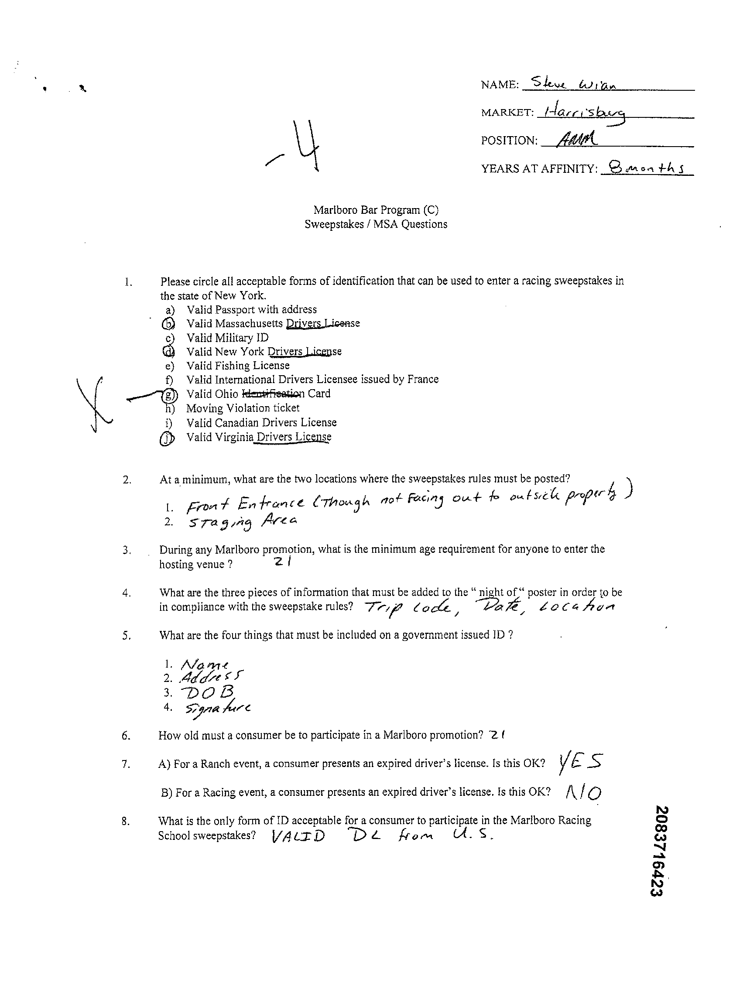 NAME: Steve Wian
MARKET: Harrisburg
POSITION: AAMM
YEARS AT AFFINITY: 8 months
-4
Marlboro Bar Program (C)
Sweepstakes / MSA Questions
1. Please circle all acceptable forms of identification that can be used to enter a racing sweepstakes in
the state of New York.
a) Valid Passport with address
b) Valid Massachusetts Drivers License
c) Valid Military ID
d) Valid New York Drivers License
e) Valid Fishing License
f) Valid International Drivers Licensee issued by France
g) Valid Ohio Identification Card
h) Moving Violation ticket
i) Valid Canadian Drivers License
j) Valid Virginia Drivers License
2. At a minimum, what are the two locations where the sweepstakes rules must be posted?
1. Front Entrance (Though not Facing out to outside property)
2. Staging Area
3. During any Marlboro promotion, what is the minimum age requirement for anyone to enter the
hosting venue ? 21
4. What are the three pieces of information that must be added to the " night of " poster in order to be
in compliance with the sweepstake rules? Trip Code, Date, Location
5. What are the four things that must be included on a government issued ID ?
1. Name
2. Address
3. DOB
4. Signature
6. How old must a consumer be to participate in a Marlboro promotion? 21
7. A) For a Ranch event, a consumer presents an expired driver's license. Is this OK? YES
B) For a Racing event, a consumer presents an expired driver's license. Is this OK? NO
8. What is the only form of ID acceptable for a consumer to participate in the Marlboro Racing
School sweepstakes? VALID DL from U.S.
2083716423